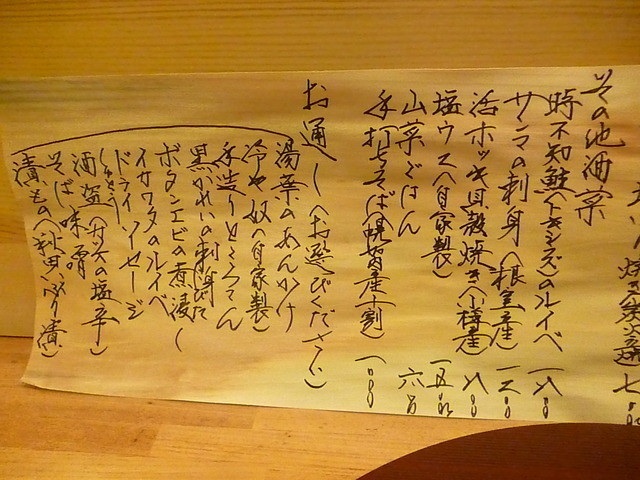 焼き
七〇〇
その他酒菜
時不知鮭(トキシラズ)のルイベ 一八〇〇
サンマの刺身(根室産) 一二〇〇
活ホッキ貝殻焼き(小樽産) 八〇〇
塩ウス(自家製) 一五〇〇
山菜ごはん 六〇〇
手打ちそば(幌加内産十割) 一〇〇〇
お通し(お選びください)
湯葉のあんかけ
冷や奴(自家製)
手造りところてん
黒がれいの刺身
ボタンエビの煮浸し
イカワタのルイベ
ドライソーセージ
酒盗(カツオの塩辛)
しゅとう
そば味噌
漬もの(秋田いぶり漬)